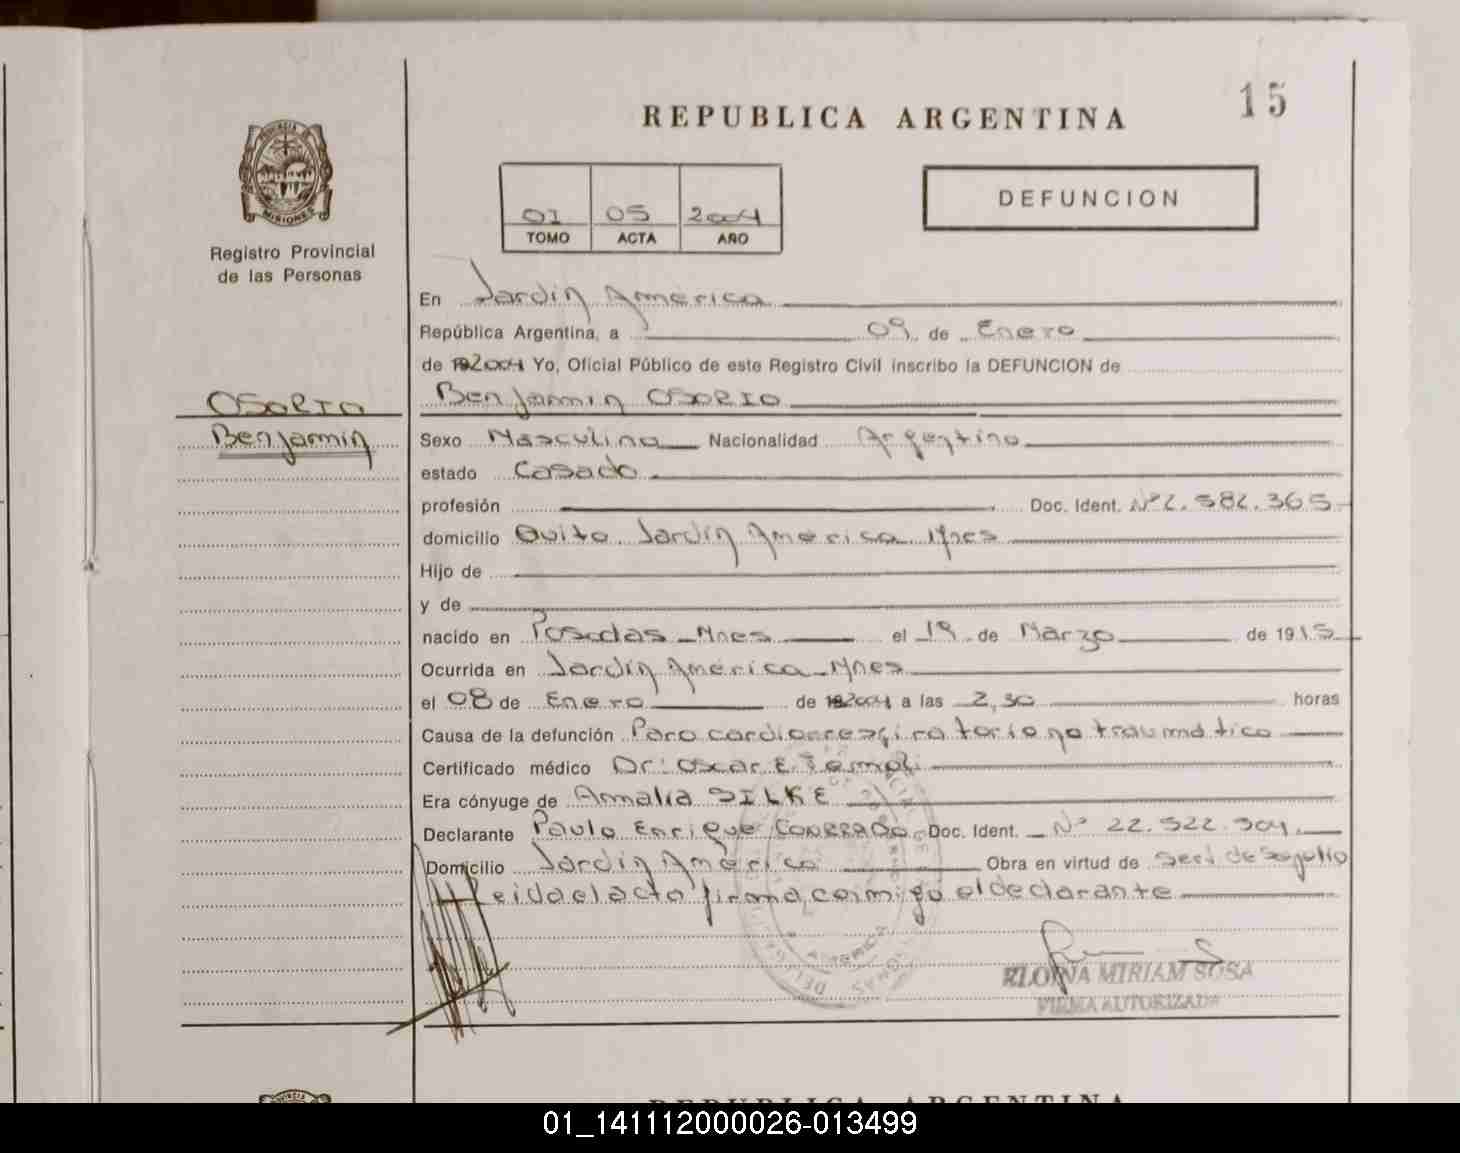 REPUBLICA ARGENTINA
15
PROVINCIA DE
MISIONES
Registro Provincial
de las Personas
DEFUNCION
01 05 2004
TOMO ACTA AÑO
En Jardín América
República Argentina, a 09 de Enero
de 2004 Yo, Oficial Público de este Registro Civil inscribo la DEFUNCION de
OSORIO
Benjamín OSORIO
Benjamín
Sexo Masculino Nacionalidad Argentino
estado Casado
profesión Doc. Ident. Nº 2.582.365
domicilio Quito. Jardín América. Mnes
Hijo de
y de
nacido en Posadas - Mnes el 19 de Marzo de 1915
Ocurrida en Jardín América - Mnes
el 08 de Enero de 2004 a las 2,30 horas
Causa de la defunción Paro cardiorrespiratorio no traumático
Certificado médico Dr. Oscar E.
Era cónyuge de Amalia SILKE
Declarante Paulo Enrique CONRRADO Doc. Ident. Nº 22.522.504
Domicilio Jardín América Obra en virtud de Serv. de Sepelio
Leida el acta firma conmigo el declarante
ELOINA MIRIAM SOSA
FIRMA AUTORIZADA
REPUBLICA ARGENTINA
01_141112000026-013499